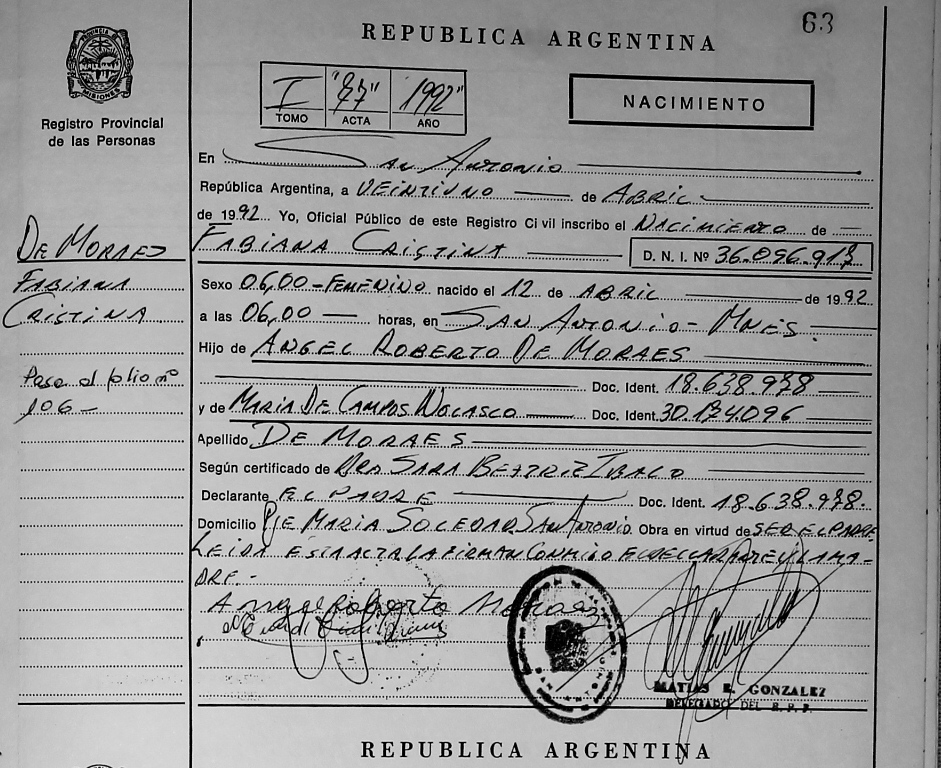 63
REPUBLICA ARGENTINA
PROVINCIA DE MISIONES
Registro Provincial
de las Personas
I "87" 1992"
TOMO ACTA AÑO
NACIMIENTO
En San Antonio
República Argentina, a VEINTIUNO de ABRIL
de 1992 Yo, Oficial Público de este Registro Civil inscribo el NACIMIENTO de
FABIANA CRISTINA D. N. I. Nº 36.096.917
Sexo 06,00-FEMENINO nacido el 12 de ABRIL de 1992
a las 06,00 horas, en SAN ANTONIO - MNES.
Hijo de ANGEL ROBERTO DE MORAES
Doc. Ident. 18.638.978
y de MARIA DE CAMPOS Doc. Ident. 30.174.096
Apellido DE MORAES
Según certificado de Dra SARA BEATRIZ
Declarante EL PADRE Doc. Ident. 18.638.978.
Domicilio Pje MARIA SOLEDAD SAN ANTONIO Obra en virtud de SER EL PADRE
LEIDA ESTA ACTA LA FIRMAN CONMIGO EL DECLARANTE Y LA MA-
DRE -
Angel Roberto Moraez
DE MORAES
FABIANA
CRISTINA
Pasa al folio nº
106 -
SAN ANTONIO
MATIAS E. GONZALEZ
DELEGADO DEL R. P. P.
REPUBLICA ARGENTINA